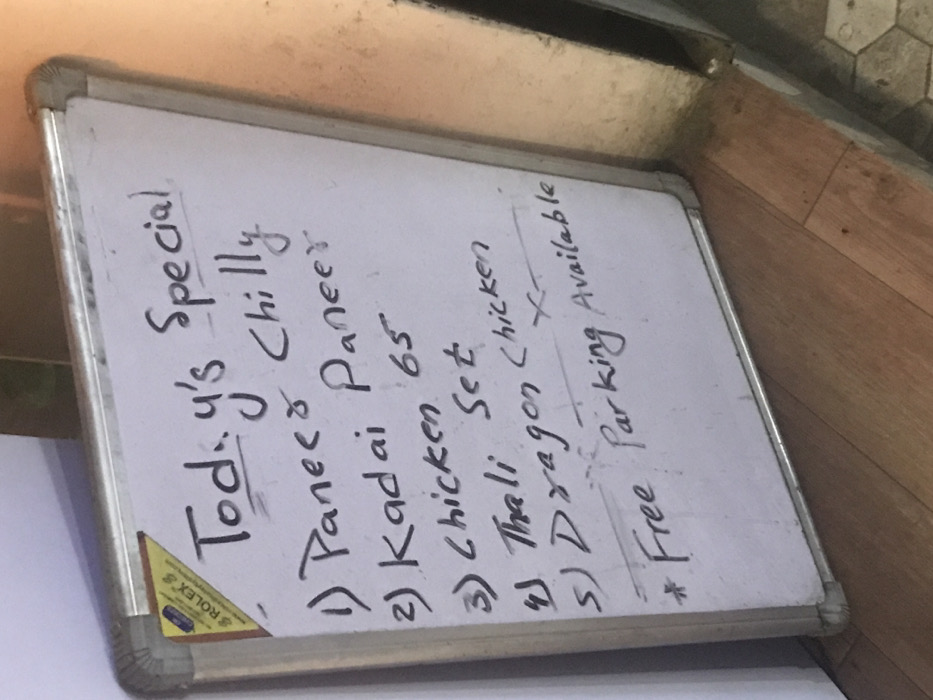 Tod.y's Special
1) Paneer Chilly
2) Kadai Paneer
3) Chicken 65
4) Thali Set
5) Dragon Chicken
* Free Parking Available
ROLEX